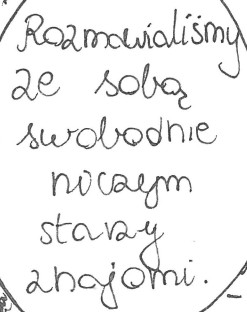 Rozmawialiśmy
ze sobą
swobodnie
niczym
starzy
znajomi.